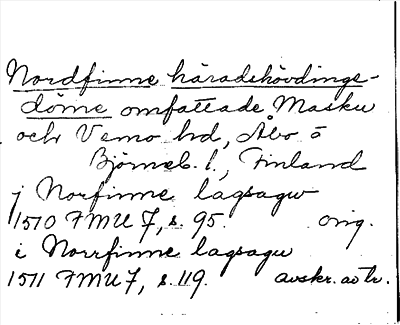 Nordfinne häradshövdinge-
döme omfattade Masku
och Vemo hd, Åbo o
Björneb. l., Finland
j Norfinne lagsagu
1510 FMU 7, s. 95. orig.
i Norrfinne lagsagu
1511 FMU 7, s. 119. avskr. av tr.